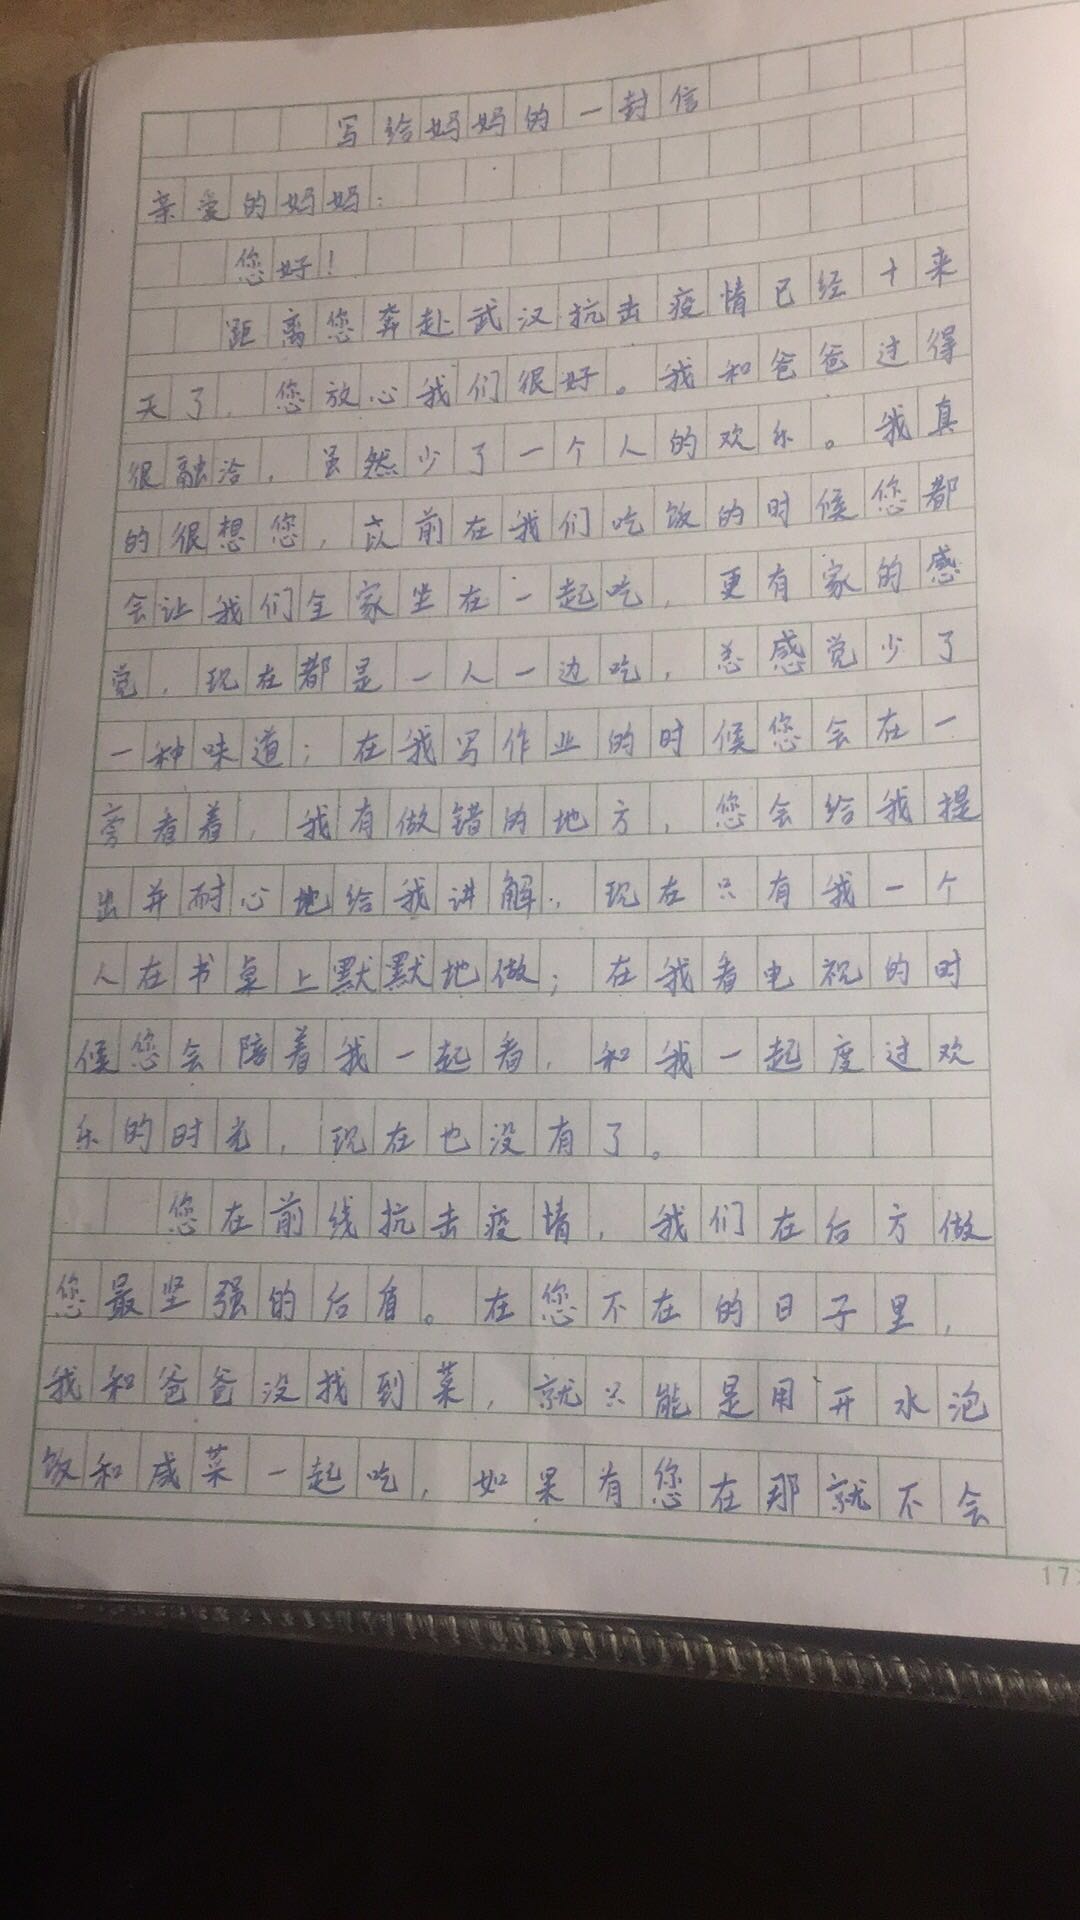 写给妈妈的一封信
亲爱的妈妈：
您好！
距离您奔赴武汉抗击疫情已经十来
天了，您放心我们很好。我和爸爸过得
很融洽，虽然少了一个人的欢乐。我真
的很想您，以前在我们吃饭的时候您都
会让我们全家坐在一起吃，更有家的感
觉，现在都是一人一边吃，总感觉少了
一种味道；在我写作业的时候您会在一
旁看着，我有做错的地方，您会给我提
出并耐心地给我讲解，现在只有我一个
人在书桌上默默地做；在我看电视的时
候您会陪着我一起看，和我一起度过欢
乐的时光，现在也没有了。
您在前线抗击疫情，我们在后方做
您最坚强的后盾。在您不在的日子里，
我和爸爸没找到菜，就只能是用开水泡
饭和咸菜一起吃，如果有您在那就不会
17